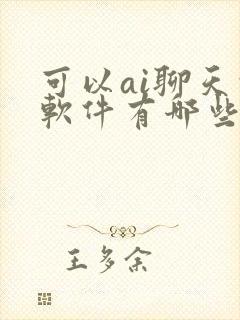 可以ai聊天
軟件有那些
王多余